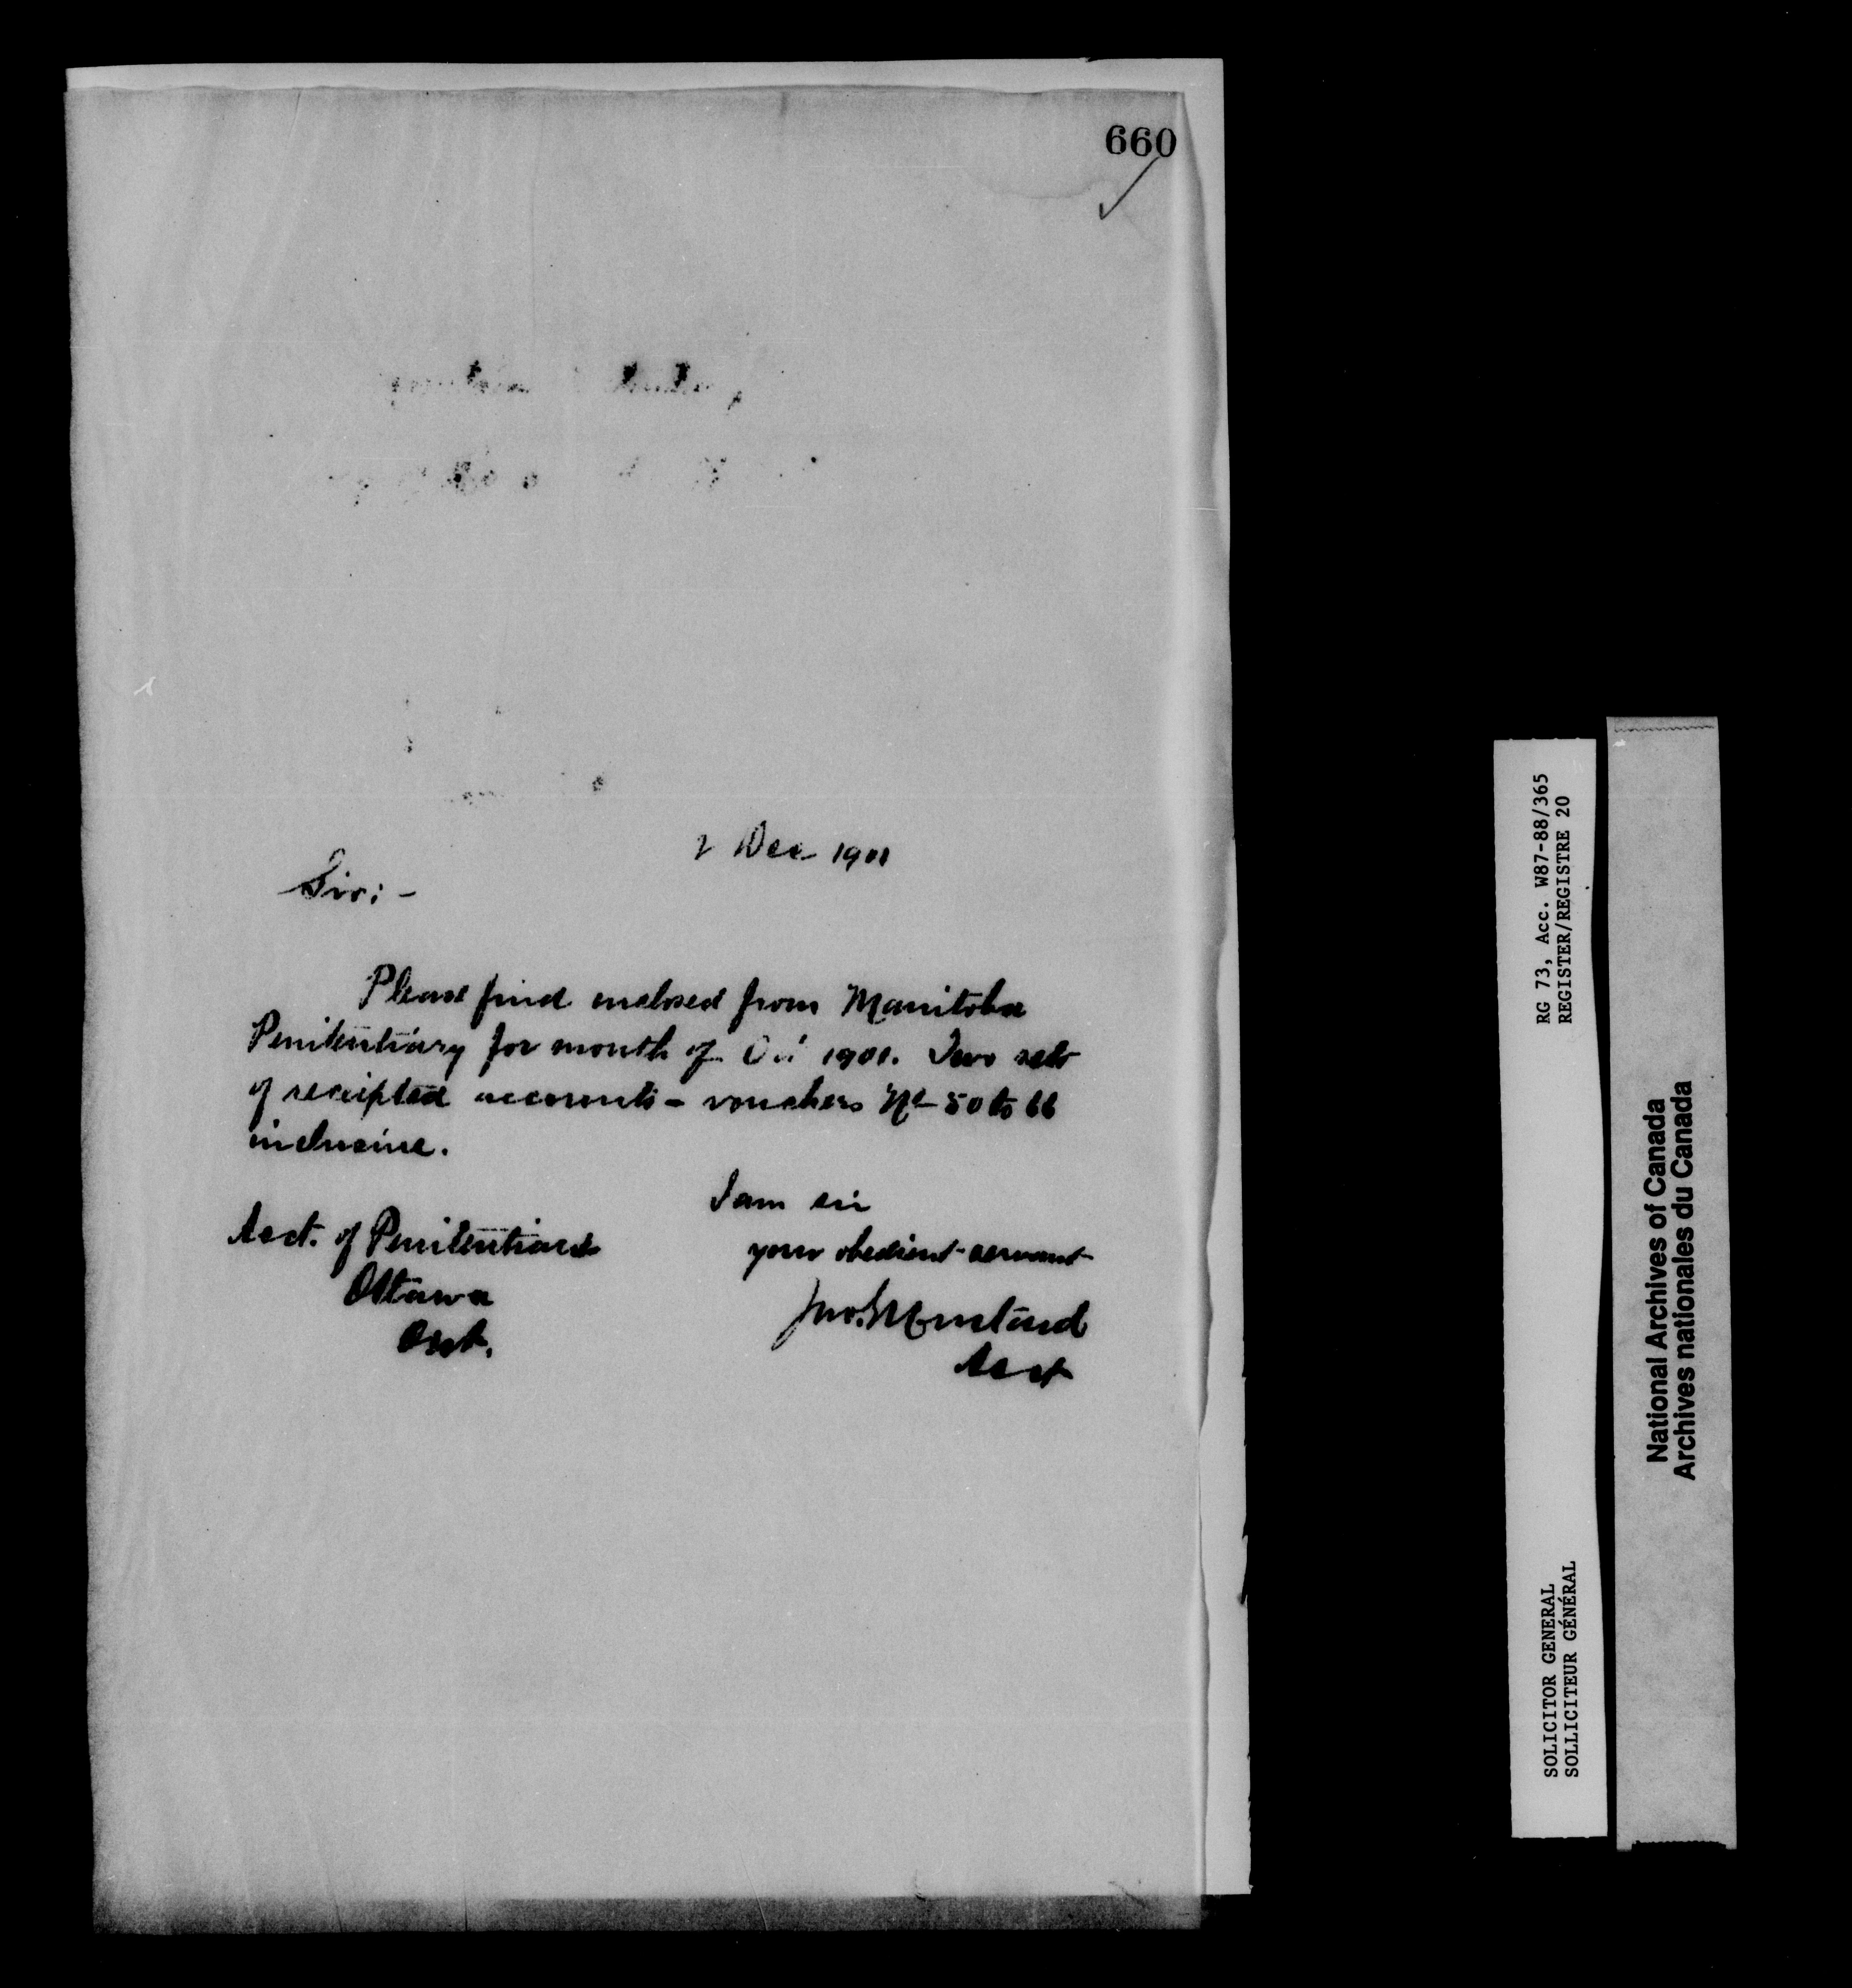 660
2 Dec 1901
Sir:-
Please find enclosed from Manitoba
Penitentiary for month of Oct 1901. Two sets
of receipted accounts - vouchers No 50 to 66
inclusive.
I am sir
your obedient servant
Acct. of Penitentiaries
Ottawa
Ont.
Jno.
Acct
RG 73, Acc. W87-88/365
REGISTER/REGISTRE 20
SOLICITOR GENERAL
SOLLICITEUR GÉNÉRAL
National Archives of Canada
Archives nationales du Canada